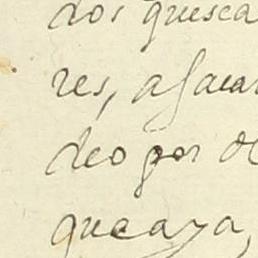 dos quesca
res, asacar
deo por o
que aya,